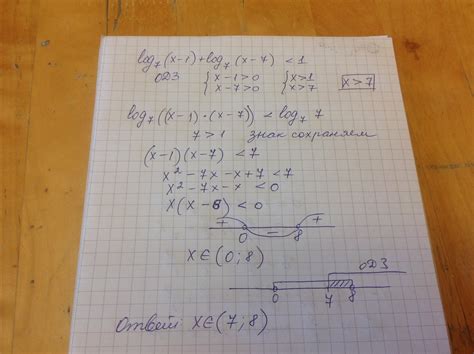 log₇(x-1)+log₇(x-7) < 1
ОДЗ { x-1>0 { x>1 x>7
{ x-7>0 { x>7
log₇((x-1)·(x-7)) < log₇ 7
7>1 знак сохраняем
(x-1)(x-7) < 7
x²-7x-x+7 < 7
x²-7x-x < 0
x(x-8) < 0
+ - +
0 8
x∈(0;8)
ОДЗ
0 7 8
Ответ: x∈(7;8)